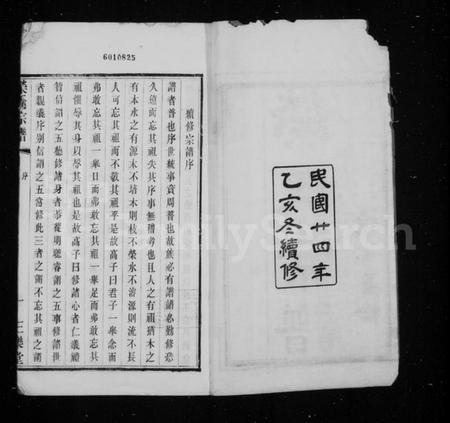 6010825
民國廿四年
乙亥冬續修
續修宗譜序
譜者普也序世統事資周普也故族必有譜譜必勤修意
久遠而忘其祖失其序事無稽考也且人之有祖猶木之
有本水之有源木不培本則枝不榮水不濬源則流不長
人可忘其祖而不敬其祖乎是故高子曰君子一舉念而
弗敢忘其祖一舉目而弗敢忘其祖一舉足而弗敢忘其
祖懼辱其身以辱其祖也是故高子曰修諸心者仁義禮
智信謂之五 修諸身者恭從明聰睿謂之五事修諸世
者親義序別信謂之五常修此三者之謂不忘其祖之謂
宗譜
序
一
三樂堂
FamilySearch